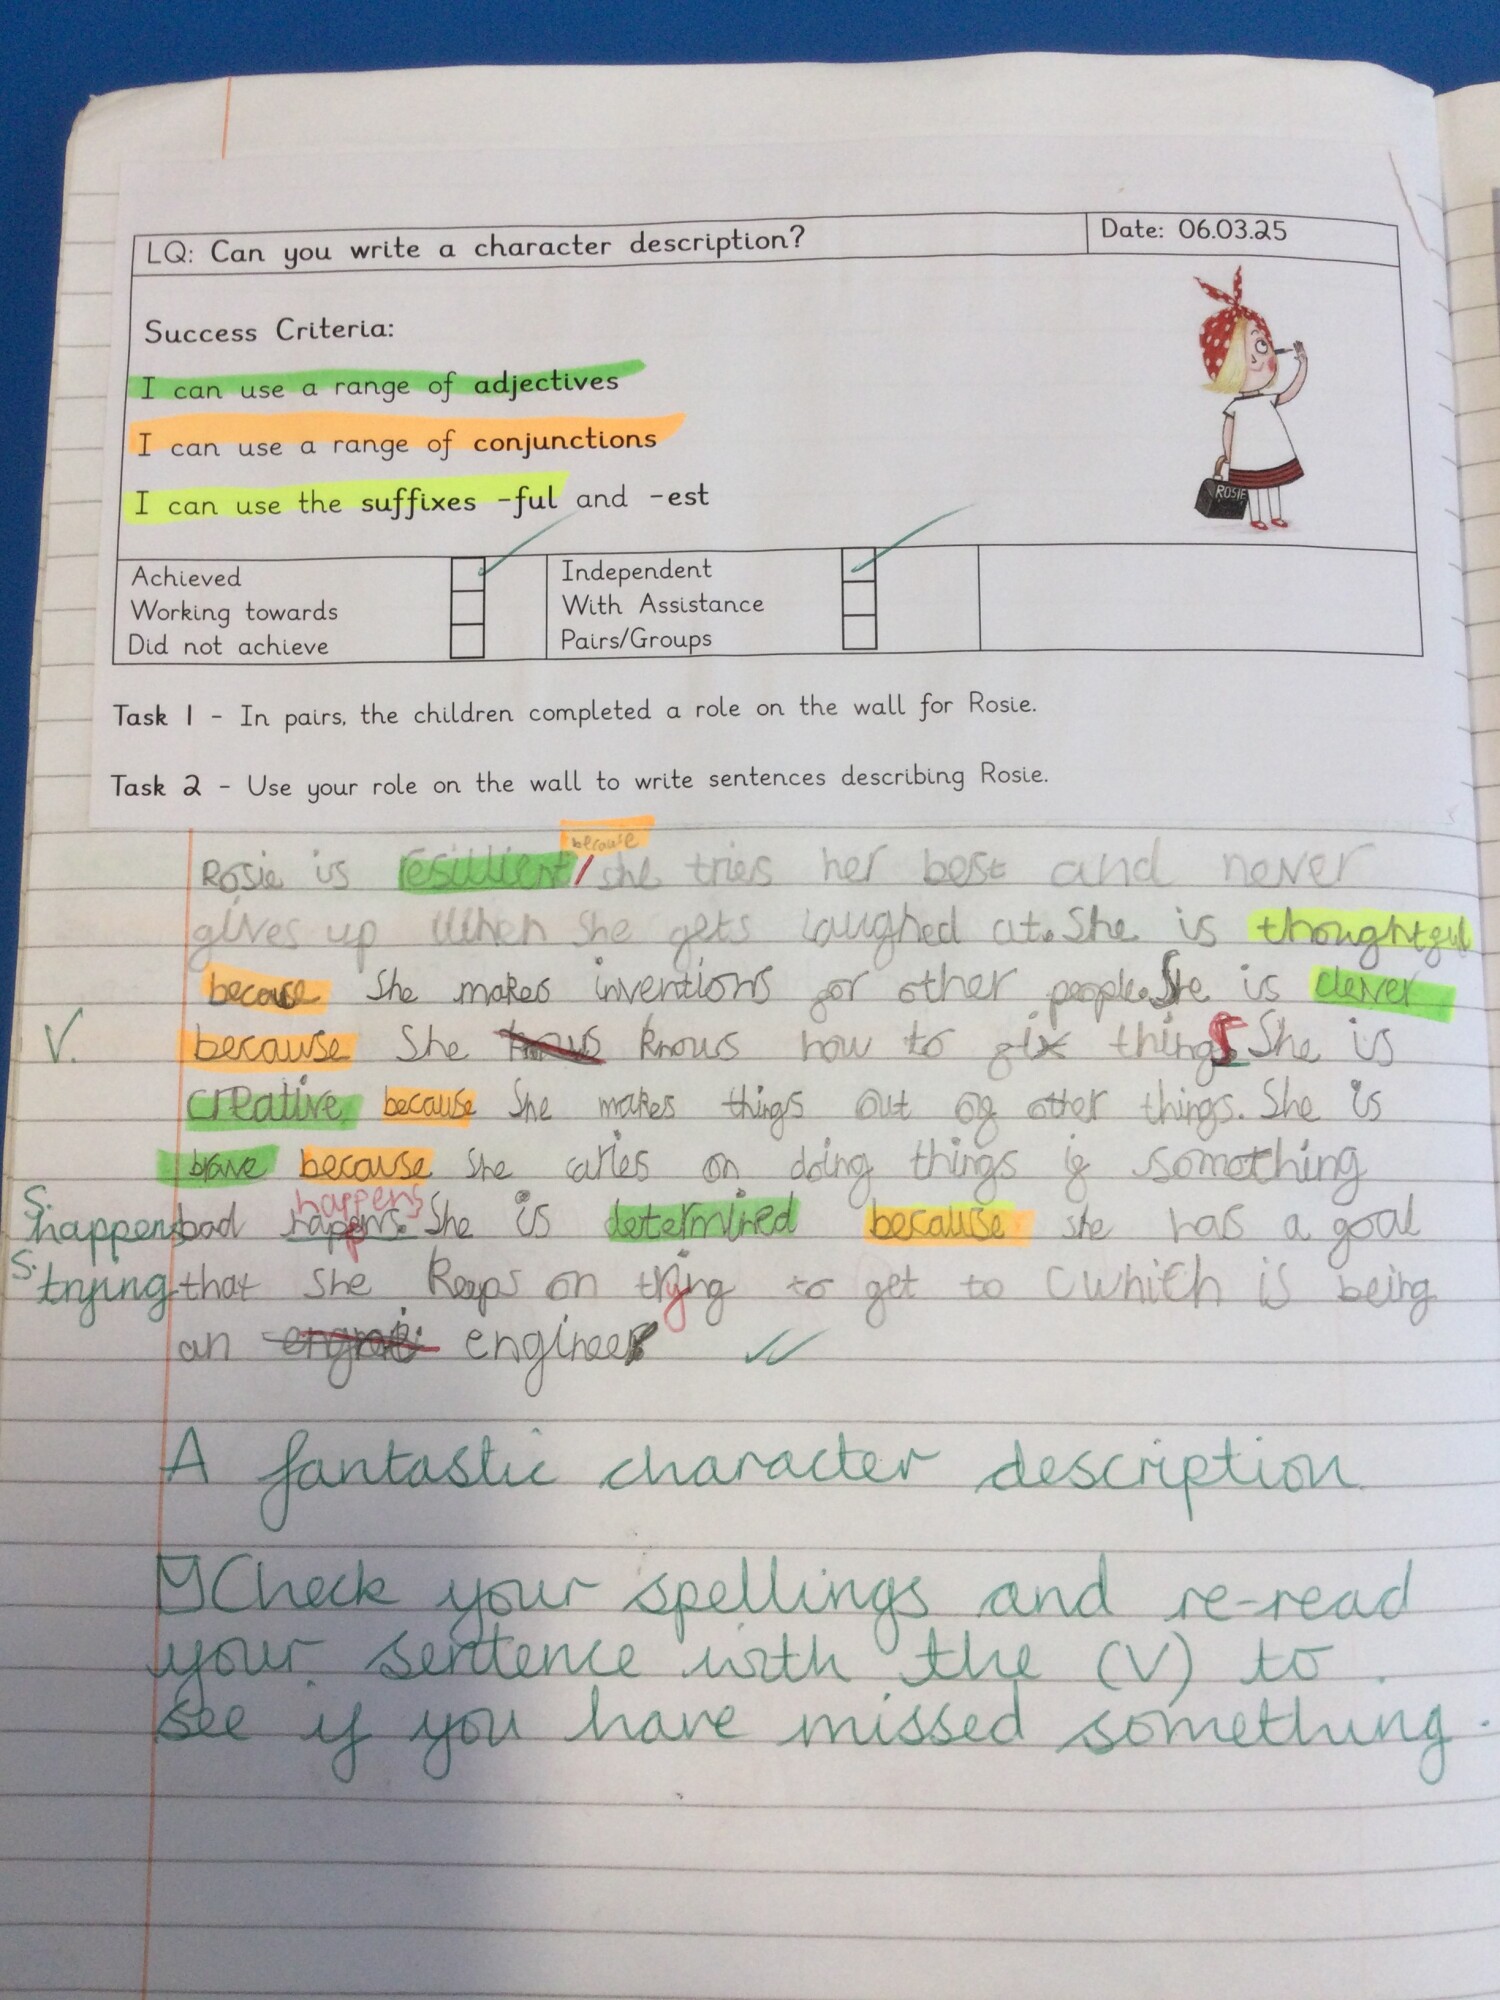 LQ: Can you write a character description?
Date: 06.03.25
Success Criteria:
I can use a range of adjectives
I can use a range of conjunctions
I can use the suffixes -ful and -est
ROSIE
Achieved
Working towards
Did not achieve
Independent
With Assistance
Pairs/Groups
Task 1 - In pairs, the children completed a role on the wall for Rosie.
Task 2 - Use your role on the wall to write sentences describing Rosie.
because
Rosie is resillient/she tries her best and never
gives up when she gets laughed at. She is thoughtful
because She makes inventions for other people. She is clever
V. because She knows how to fix things She is
creative because She makes things out of other things. She is
brave because She caries on doing things if something
happens
S. happens bad happens. She is determined because she has a goal
S. trying that She Keeps on trying to get to Cwhich is being
an engineer
A fantastic character description
Check your spellings and re-read
your sentence with the (V) to
see if you have missed something.